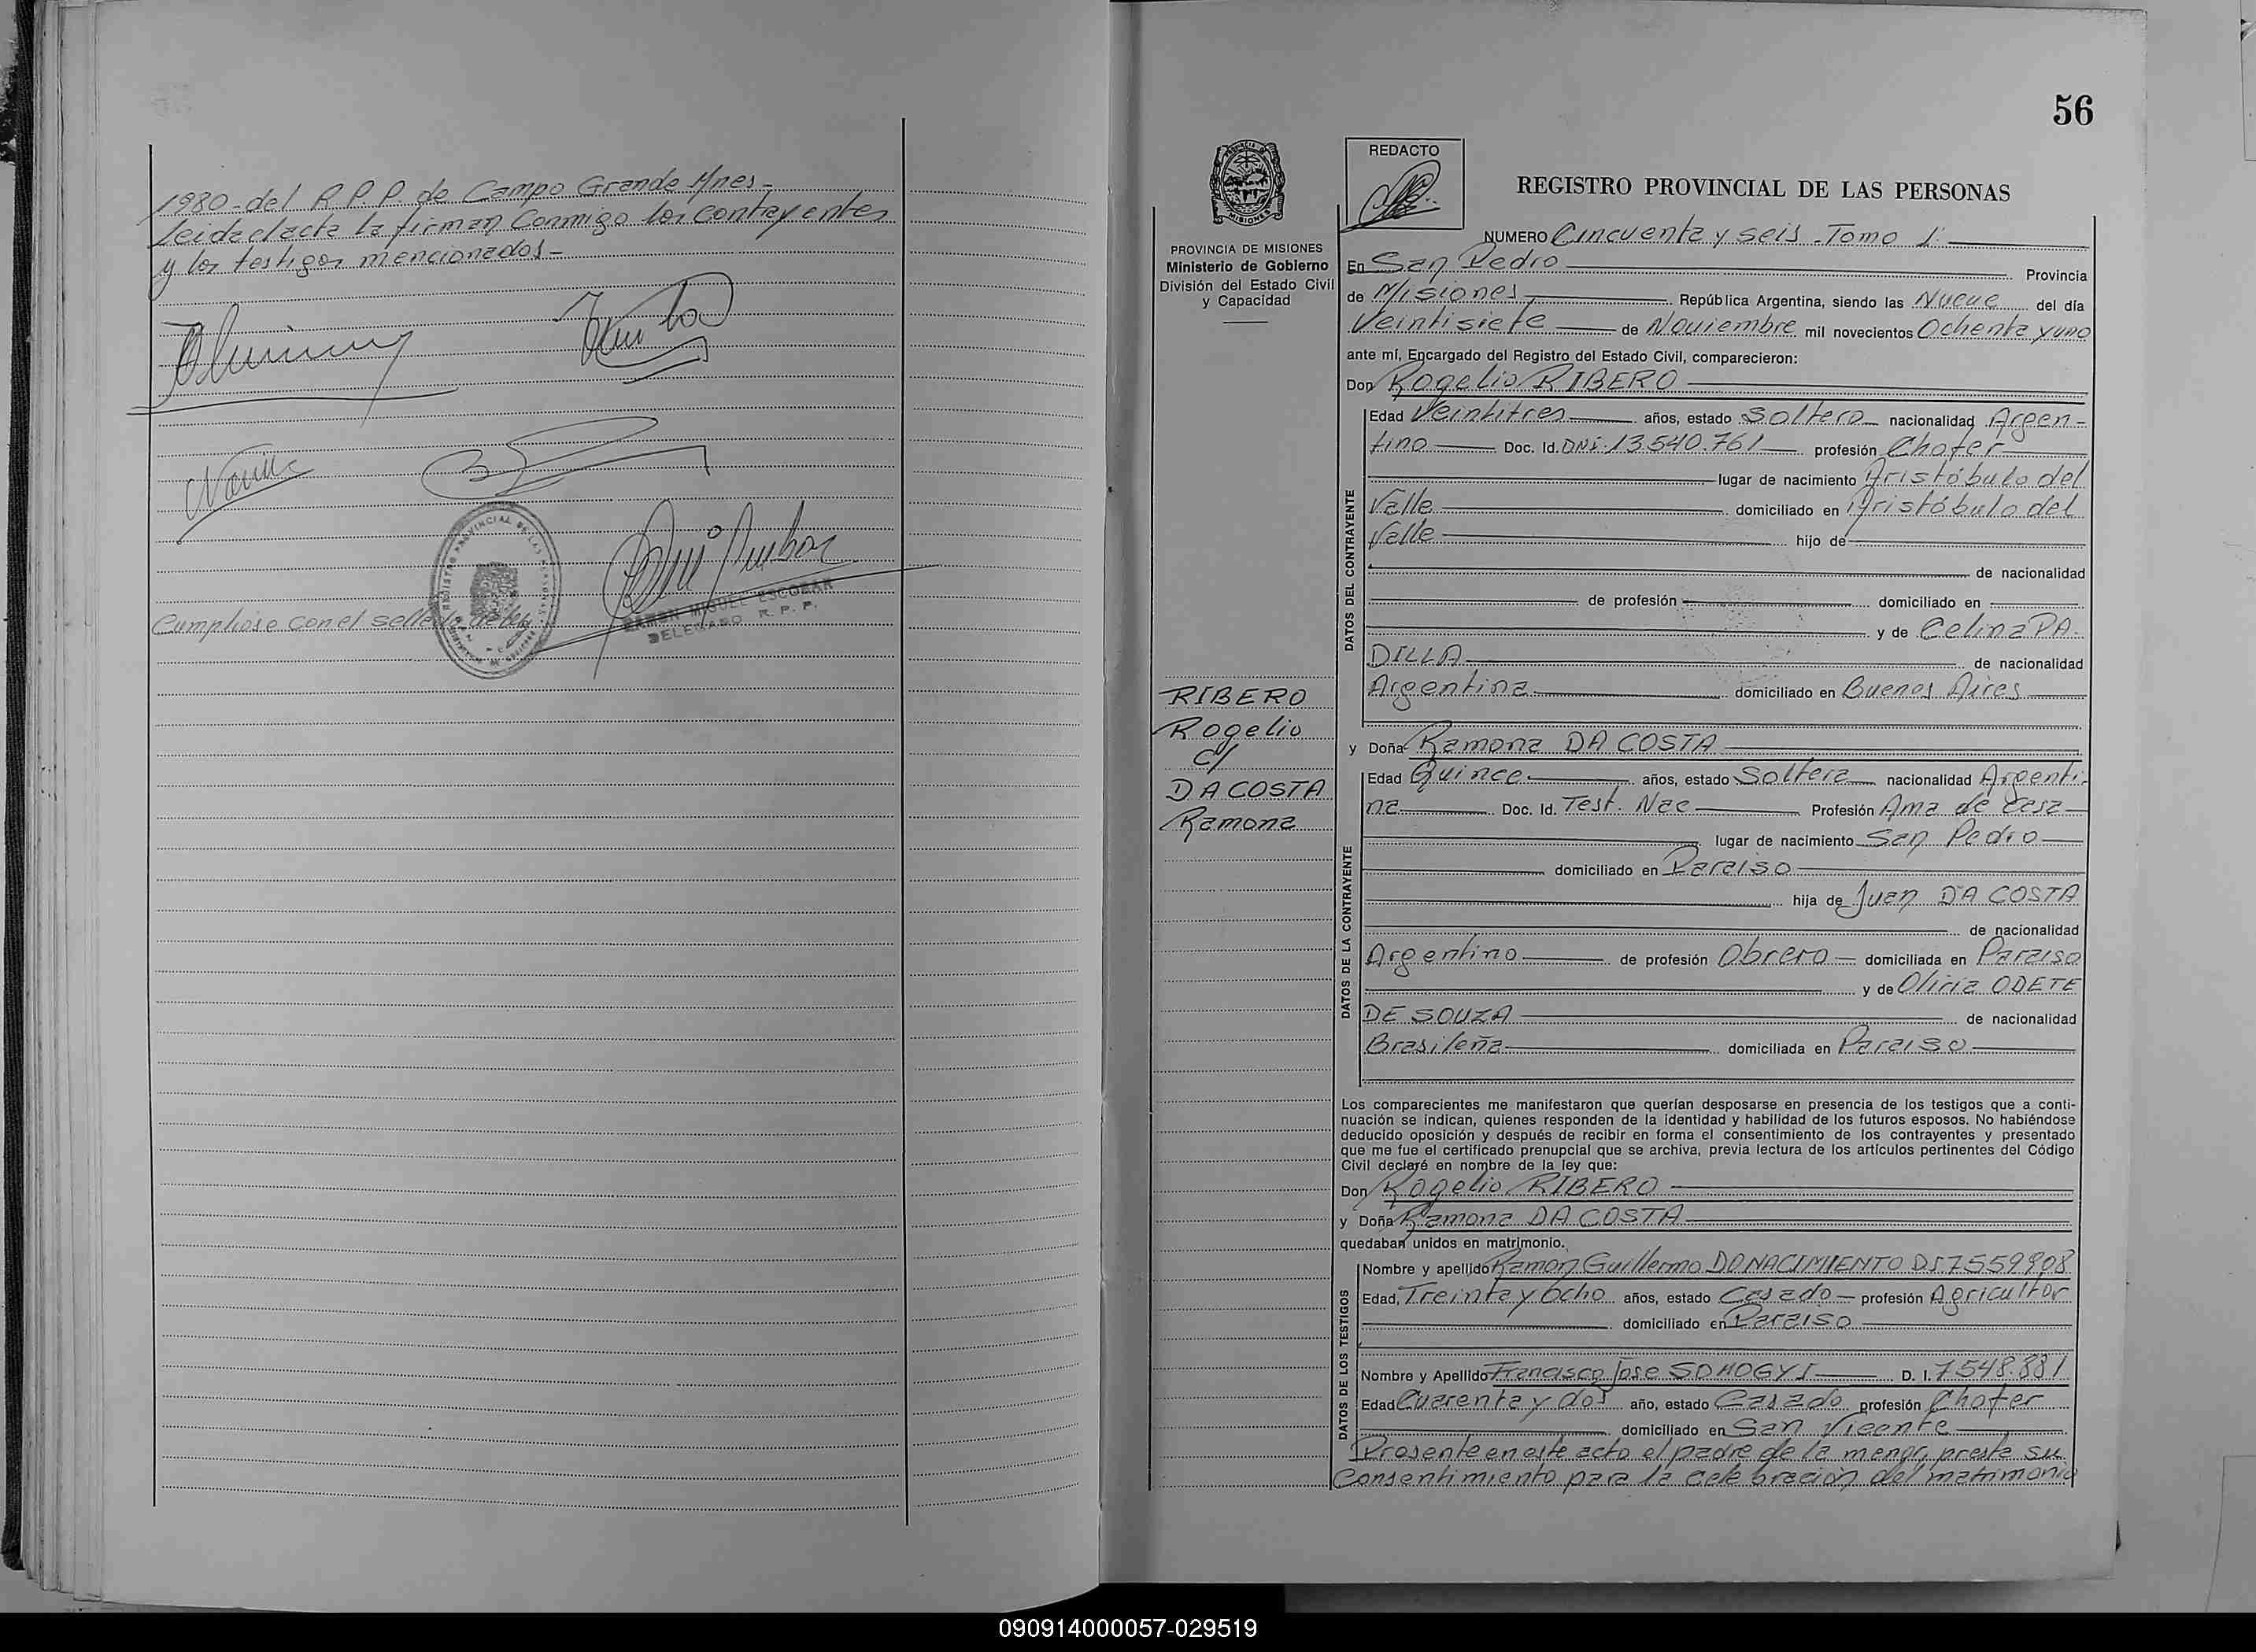 1980-del R.P.P. de Campo Grande Mnes-
leida el acta la firman conmigo los contrayentes
y los testigos mencionados-
REGISTRO PROVINCIAL DE LAS PERSONAS
RAMON MIGUEL ESCOBAR
DELEGADO R. P. P.
Cumpliose con el sellado de ley
56
REDACTO
REGISTRO PROVINCIAL DE LAS PERSONAS
PROVINCIA DE MISIONES
Ministerio de Gobierno
División del Estado Civil
y Capacidad
NUMERO Cincuenta y seis - Tomo 1º
En San Pedro Provincia
de Misiones República Argentina, siendo las Nueve del día
Veintisiete de Noviembre mil novecientos Ochenta y uno
ante mí, Encargado del Registro del Estado Civil, comparecieron:
Don Rogelio RIBERO
DATOS DEL CONTRAYENTE
Edad Veintitres años, estado Soltero nacionalidad Argen-
tino Doc. Id. DNI. 13.540.761 profesión Chofer
lugar de nacimiento Aristóbulo del
Valle domiciliado en Aristóbulo del
Valle hijo de
de nacionalidad
de profesión domiciliado en
y de Celina PA-
DILLA de nacionalidad
Argentina domiciliado en Buenos Aires
RIBERO
Rogelio
c/
DA COSTA
Ramona
y Doña Ramona DA COSTA
DATOS DE LA CONTRAYENTE
Edad Quince años, estado Soltera nacionalidad Argenti-
na Doc. Id. Test. Nac Profesión Ama de casa
lugar de nacimiento San Pedro
domiciliado en Paraiso
hija de Juan DA COSTA
de nacionalidad
Argentino de profesión Obrero domiciliada en Paraiso
y de Oliria ODETE
DE SOUZA de nacionalidad
Brasileña domiciliada en Paraiso
Los comparecientes me manifestaron que querían desposarse en presencia de los testigos que a conti-
nuación se indican, quienes responden de la identidad y habilidad de los futuros esposos. No habiéndose
deducido oposición y después de recibir en forma el consentimiento de los contrayentes y presentado
que me fue el certificado prenupcial que se archiva, previa lectura de los artículos pertinentes del Código
Civil declaré en nombre de la ley que:
Don Rogelio RIBERO
y Doña Ramona DA COSTA
quedaban unidos en matrimonio.
DATOS DE LOS TESTIGOS
Nombre y apellido Ramon Guillermo DO NACIMIENTO DI 7559908
Edad, Treinta y Ocho años, estado Casado profesión Agricultor
domiciliado en Paraiso
Nombre y Apellido Francisco Jose SOMOGYI D. I. 7548.881
Edad Cuarenta y dos año, estado Casado profesión Chofer
domiciliado en San Vicente
Presente en este acto el padre de la menor, presta su
Consentimiento para la celebración del matrimonio
090914000057-029519